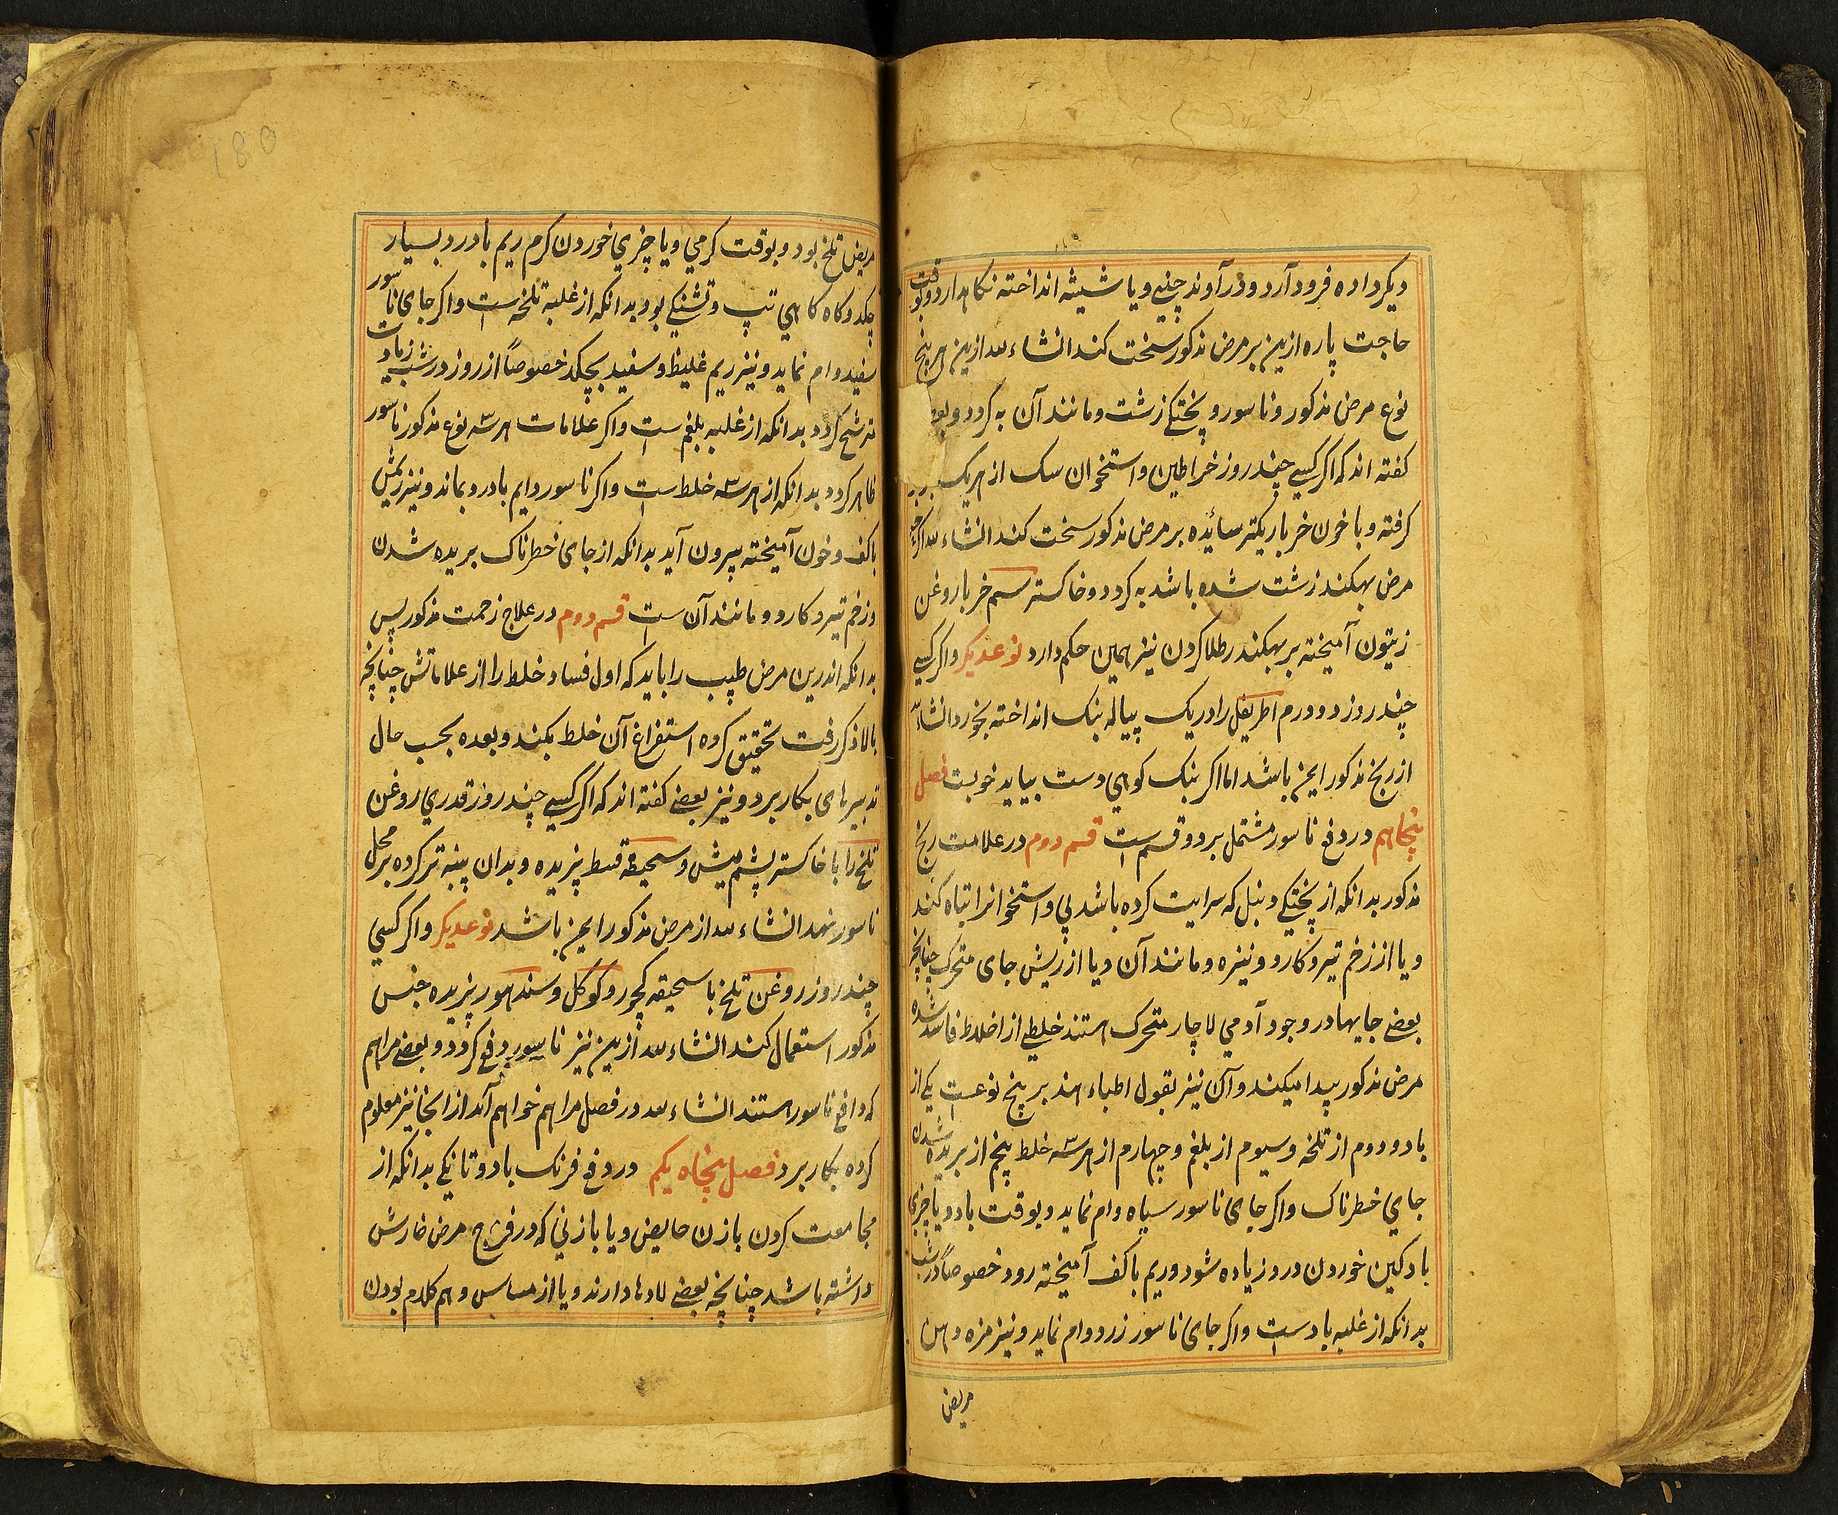 دیکر داده فرود آرد و در آوند چینی و یا شیشه انداخته نکاهدارد و بوقت
حاجت پاره ازین بر مرض مذکور سخت کند انشاء الله ازین هر پنج
نوع مرض مذکور و ناسور و پختکی زشت و مانند آن به کردد و بعضی
کفته اند که اکر کسی چند روز خراطین و استخوان سک از هر یک برابر
کرفته و با خون خر باریکتر سائیده بر مرض مذکور سخت کند انشاء الله اکرچه
مرض بهکندر زشت شده باشد به کردد و خاکستر سم خر با روغن
زیتون آمیخته بر بهکندر طلا کردن نیز همین حکم دارد نوعدیکر و اکر کسی
چند روز دو درم اطریفل را در یک پیاله بنک انداخته بخورد انشاء الله
از رنج مذکور ایمن باشد اما اکر بنک کوهی دست بیاید خوبست فصل
پنجاهم در دفع ناسور مشتمل بر دو قسم است قسم دوم در علامت رنج
مذکور بدانکه از پختکی دنبل که سرایت کرده باشد پی و استخوانرا تباه کند
و یا از زخم تیر و کارد و نیزه و مانند آن و یا از ریش جای متحرک چنانچه
بعضی جایها در وجود آدمی لاچار متحرک هستند خلطی از اخلاط فاسد شده
مرض مذکور پیدا میکند و آن نیز بقول اطباء هند بر پنج نوعست یکی از
باد و دوم از تلخه و سیوم از بلغم و چهارم از هر سه خلط پنجم از بریده شدن
جای خطرناک و اکر جای ناسور سیاه وام نماید و بوقت باد و یا چیزی
بادکین خوردن درد زیاده شود و ریم با کف آمیخته رود خصوصاً در شب
بدانکه از غلبه باد است و اکر جای ناسور زرد وام نماید و نیز مزه دهن
مریض
مریض تلخ بود و بوقت کرمی و یا چیزی خوردن کرم ریم با درد بسیار
چکد و کاه کاهی تپ و تشنکی بود بدانکه از غلبه تلخه است و اکر جای ناسور
سفید وام نماید و نیز ریم غلیظ و سفید بچکد خصوصاً از روز در شب زیادت
مترشح کردد بدانکه از غلبه بلغم است و اکر علامات هر سه نوع مذکور ناسور
ظاهر کردد بدانکه از هر سه خلط است و اکر ناسور دایم با درد بماند و نیز ریمش
با کف و خون آمیخته بیرون آید بدانکه از جای خطرناک بریده شدن
و زخم تیر و کارد و مانند آن ست قسم دوم در علاج زحمت مذکور پس
بدانکه اندرین مرض طبیب را باید که اول فساد خلط را از علاماتش چنانچه
بالا ذکر رفت تحقیق کرده استفراغ آن خلط بکند و بعده بحسب حال
تدبیرهای بکار برد و نیز بعضی کفته اند که اکر کسی چند روز قدری روغن
تلخ را با خاکستر پشم میش و سحیقه قسط پزیده و بدان پنبه تر کرده بر محل
ناسور نهد انشاء الله از مرض مذکور ایمن باشد نوعدیکر و اکر کسی
چند روز روغن تلخ با سحیقه کچور و کوکل و سندهور پزیده جنس
مذکور استعمال کند انشاء الله ازین نیز ناسور دفع کردد و بعضی مراهم
که دافع ناسور هستند انشاء الله در فصل مراهم خواهم آمد از آنجا نیز معلوم
کرده بکار برد فصل پنجاه یکم در دفع فرنک باد و تانکی بدانکه از
مجامعت کردن با زن حایض و یا با زنی که در فرج مرض خارش
داشته باشد چنانچه بعضی لادها دارند و یا از مساس و هم کلام بودن
180